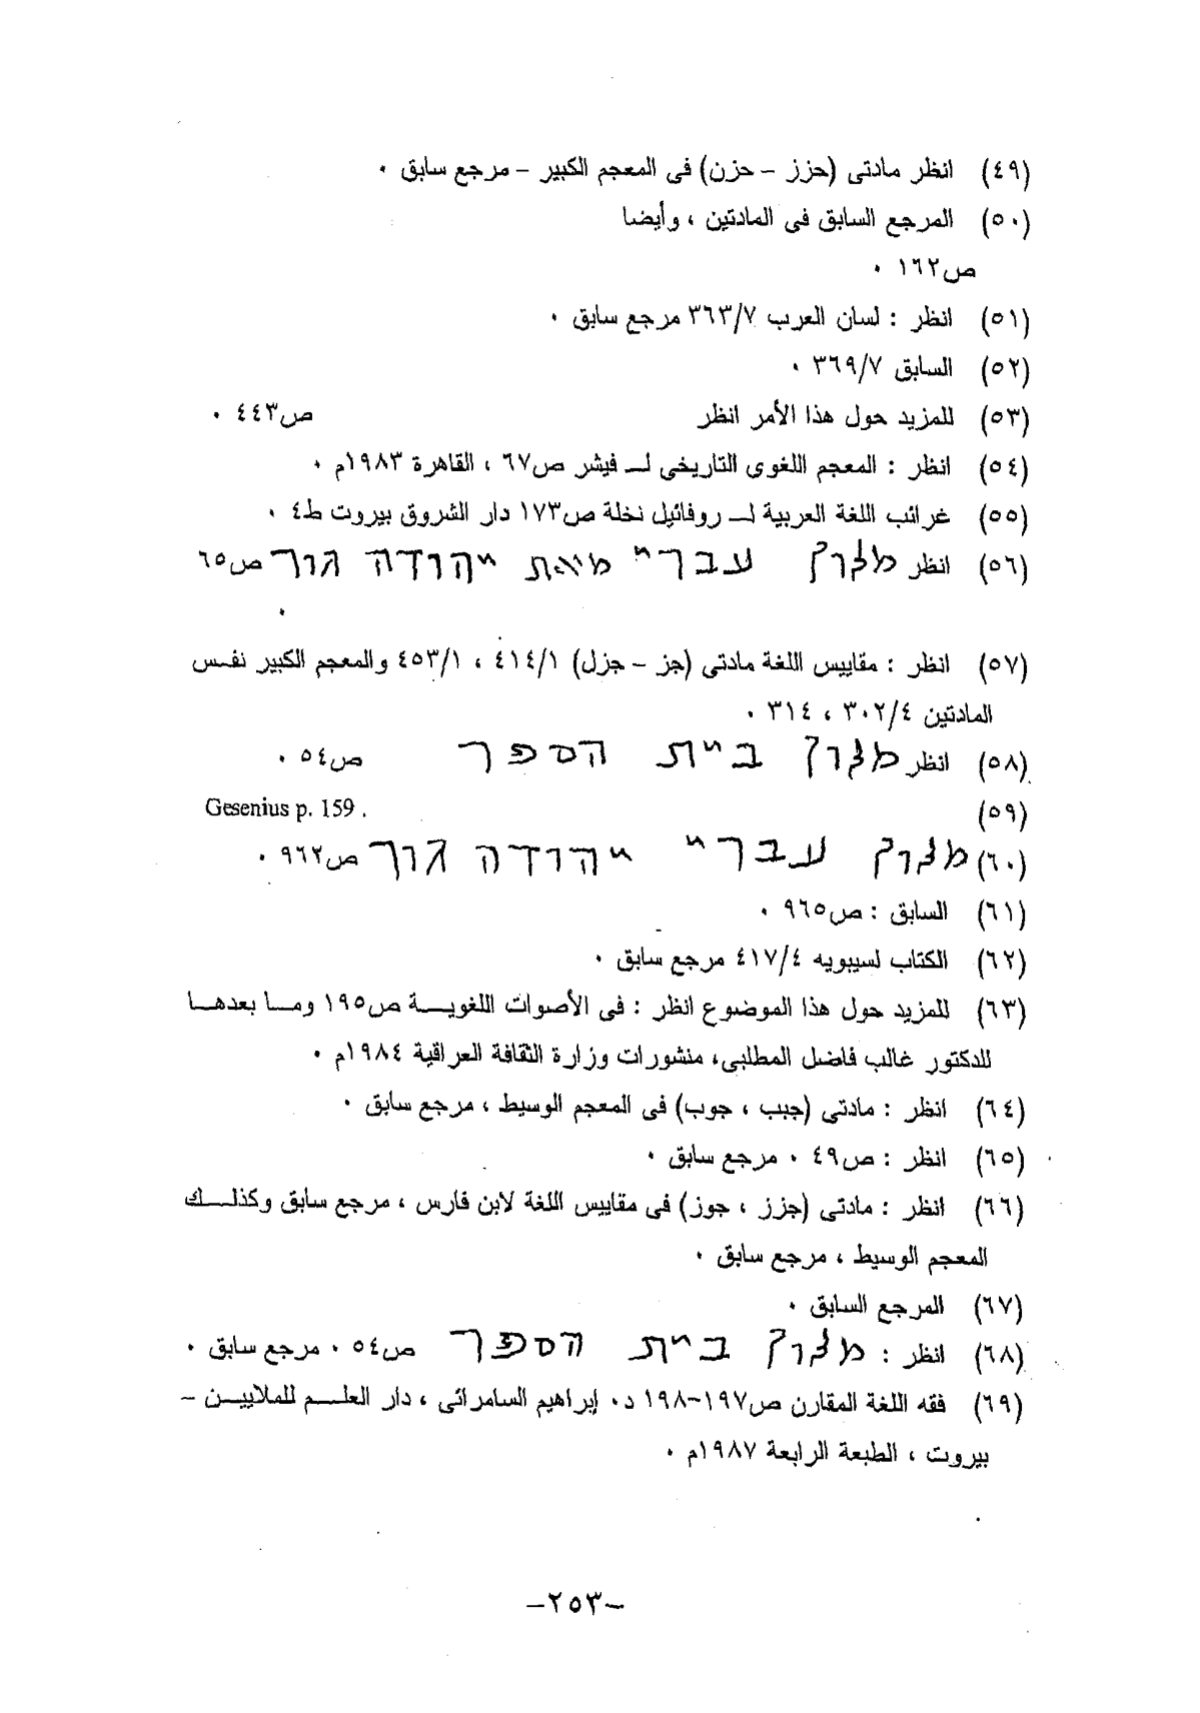 (٤٩) انظر مادتى (حزز – حزن) فى المعجم الكبير – مرجع سابق ٠
(٥٠) المرجع السابق فى المادتين ، وأيضا
ص١٦٢ ٠
(٥١) انظر : لسان العرب ٣٦٣/٧ مرجع سابق ٠
(٥٢) السابق ٣٦٩/٧ ٠
(٥٣) للمزيد حول هذا الأمر انظر ص٤٤٣ ٠
(٥٤) انظر : المعجم اللغوى التاريخى لــ فيشر ص٦٧ ، القاهرة ١٩٨٣م ٠
(٥٥) غرائب اللغة العربية لــ روفائيل نخلة ص١٧٣ دار الشروق بيروت ط٤ ٠
(٥٦) انظر מלון עברי מאת יהודה גור ص٦٥
٠
(٥٧) انظر : مقاييس اللغة مادتى (جز – جزل) ٤١٤/١ ، ٤٥٣/١ والمعجم الكبير نفس
المادتين ٣٠٢/٤ ، ٣١٤ ٠
(٥٨) انظر מלון בית הספר ص٥٤ ٠
(٥٩) Gesenius p. 159 .
(٦٠) מלון עברי יהודה גור ص٩٦٢ ٠
(٦١) السابق : ص٩٦٥ ٠
(٦٢) الكتاب لسيبويه ٤١٧/٤ مرجع سابق ٠
(٦٣) للمزيد حول هذا الموضوع انظر : فى الأصوات اللغويــة ص١٩٥ ومــا بعدهــا
للدكتور غالب فاضل المطلبى، منشورات وزارة الثقافة العراقية ١٩٨٤م ٠
(٦٤) انظر : مادتى (جبب ، جوب) فى المعجم الوسيط ، مرجع سابق ٠
(٦٥) انظر : ص٤٩ ٠ مرجع سابق ٠
(٦٦) انظر : مادتى (جزز ، جوز) فى مقاييس اللغة لابن فارس ، مرجع سابق وكذلــك
المعجم الوسيط ، مرجع سابق ٠
(٦٧) المرجع السابق ٠
(٦٨) انظر : מלון בית הספר ص٥٤ ٠ مرجع سابق ٠
(٦٩) فقه اللغة المقارن ص١٩٧–١٩٨ د٠ إبراهيم السامرائى ، دار العلــم للملاييــن –
بيروت ، الطبعة الرابعة ١٩٨٧م ٠
–٢٥٣–